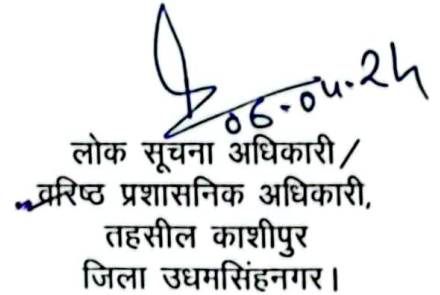 06-04-24
लोक सूचना अधिकारी/
वरिष्ठ प्रशासनिक अधिकारी,
तहसील काशीपुर
जिला उधमसिंहनगर।